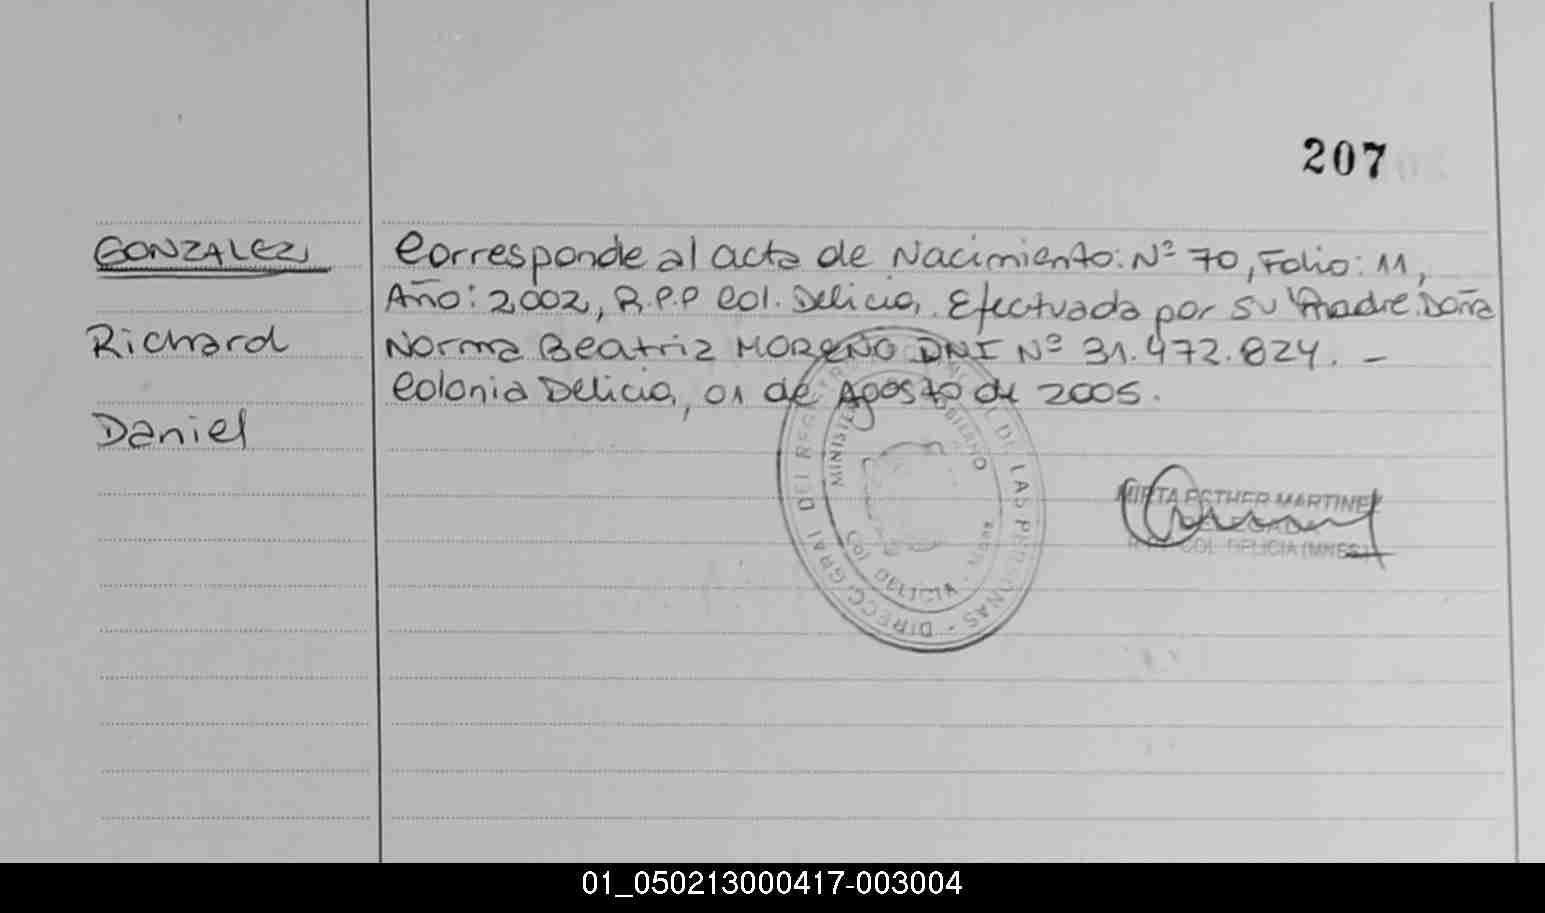 207
GONZALEZ
Richard
Daniel
Corresponde al acta de Nacimiento: Nº 70, Folio: 11,
Año: 2,002, R.P.P Col. Delicia, Efectuada por su Madre: Doña
Norma Beatriz MORENO DNI Nº 31.472.824. -
Colonia Delicia, 01 de Agosto de 2005.
DIRECC. GRAL DEL DE LAS PERSONAS
DELICIA
MIRTA ESTHER MARTINEZ
COL. DELICIA (MNES)
01_050213000417-003004